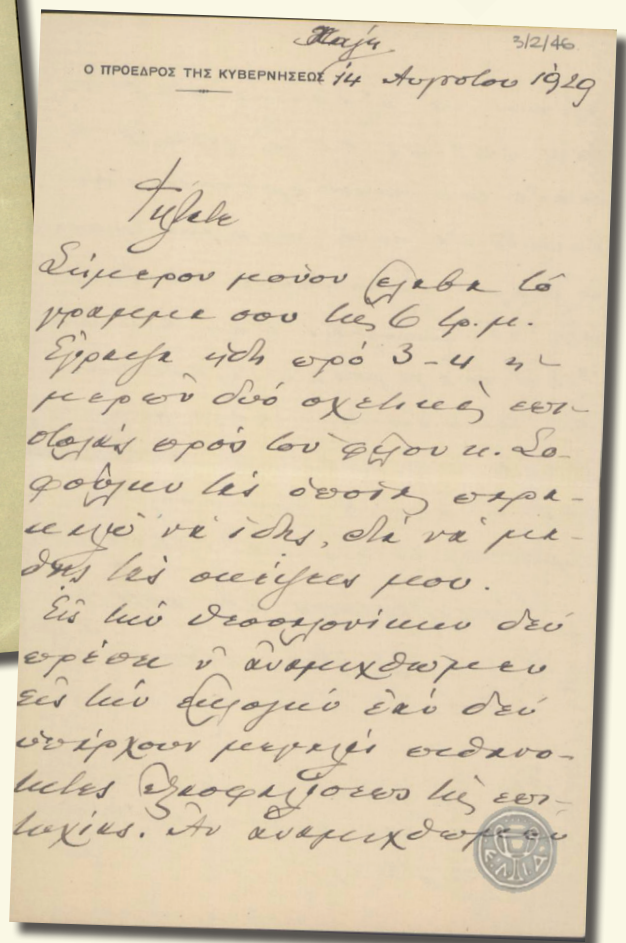 Χάγη
3/2/46
Ο ΠΡΟΕΔΡΟΣ ΤΗΣ ΚΥΒΕΡΝΗΣΕΩΣ
14 Αυγούστου 1929
Φίλτατε
Σήμερον μόνον έλαβα τό
γράμμα σου της 6 τρ. μ.
Έγραψα ήδη πρό 3-4 η-
μερών δυό σχετικάς επι-
στολάς πρός τον φίλον κ. Σο-
φούλην τας οποίας παρα-
καλώ νά ίδης, διά νά μά-
θης τας σκέψεις μου.
Εις την Θεσσαλονίκην δεν
πρέπει ν' αναμιχθώμεν
εις την εκλογήν εάν δεν
υπάρχουν μεγάλαι πιθανό-
τητες εξασφαλίσεως της επι-
τυχίας. Αν αναμιχθώμεν
Ε.Λ.Ι.Α